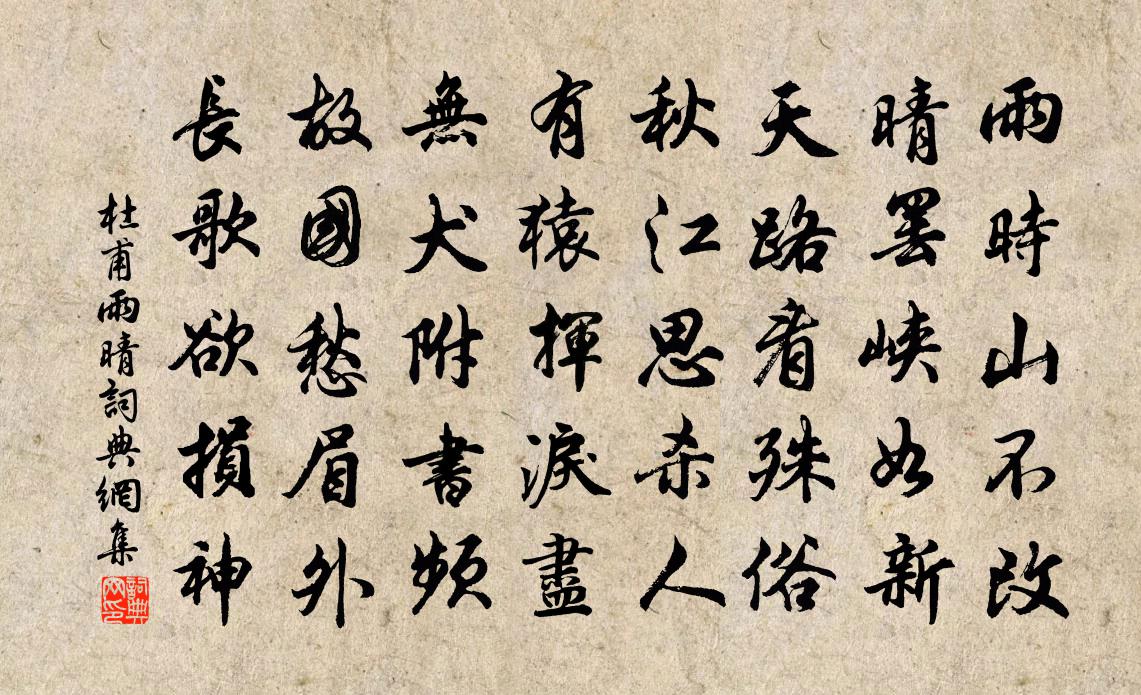 雨時山不改
晴罷峽如新
天路看殊俗
秋江思杀人
有猿揮淚盡
無犬附書頻
故國愁眉外
長歌欲損神
杜甫雨晴詞典網集
詞典网印